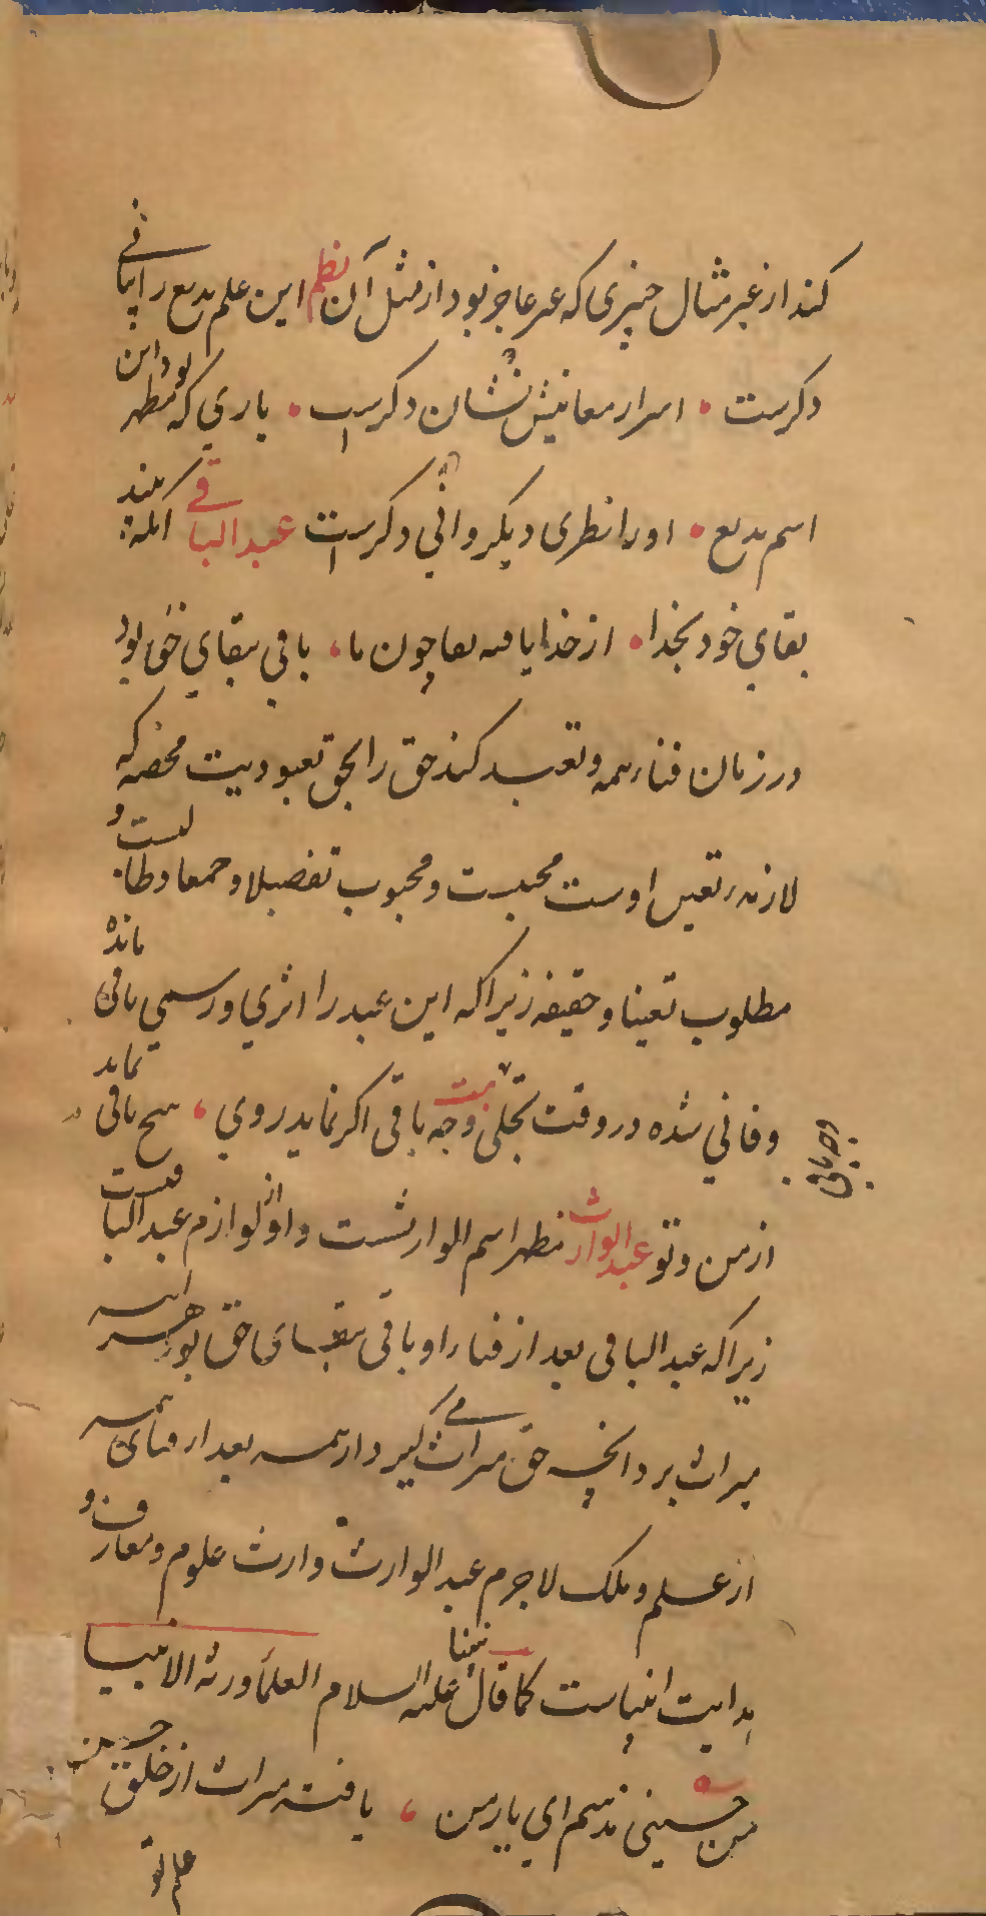 کند از غیر مثال چیزی که غیر عاجز بود از مثل آن نظم این علم بدیع را بیانی
دکرست • اسرار معانیش نشان دکرست • یاری که مظهر بود این
اسم بدیع • او را نظری دیکر و آنی دکرست عبدالباقی آنکه بیند
بقای خود بخدا • از خدا یافته بقا چون ما • باقی ببقای حق بود
در زمان فناء همه و تعبد کند حق را بحق تعبودیت محضه که
لازمهٔ تعین اوست محبست و محبوب تفصیلا و جمعا و طالبست و
مطلوب تعینا و حقیقه زیرا که این عبد را اثری و رسمی باقی نمانده
و فانی شده در وقت تجلی وجه باقی بیت اکر نماید روی ، هیچ باقی نماند
وجه باقی
از من و تو عبدالوارث مظهر اسم الوارثست و او از لوازم عبدالباقیست
زیرا که عبدالباقی بعد از فناء او باقی ببقای حق بود هر آینه
میراث برد آنچه حق میراث می کیرد از همه بعد از فنای همه
از علم و ملک لاجرم عبدالوارث وارث علوم و معارف و
هدایت انبیاست کما قال نبینا علیه السلام العلماء ورثه الانبیا
من حسینی مذهبم ای یار من ، یافته میراث از خلق حسین
علم تو